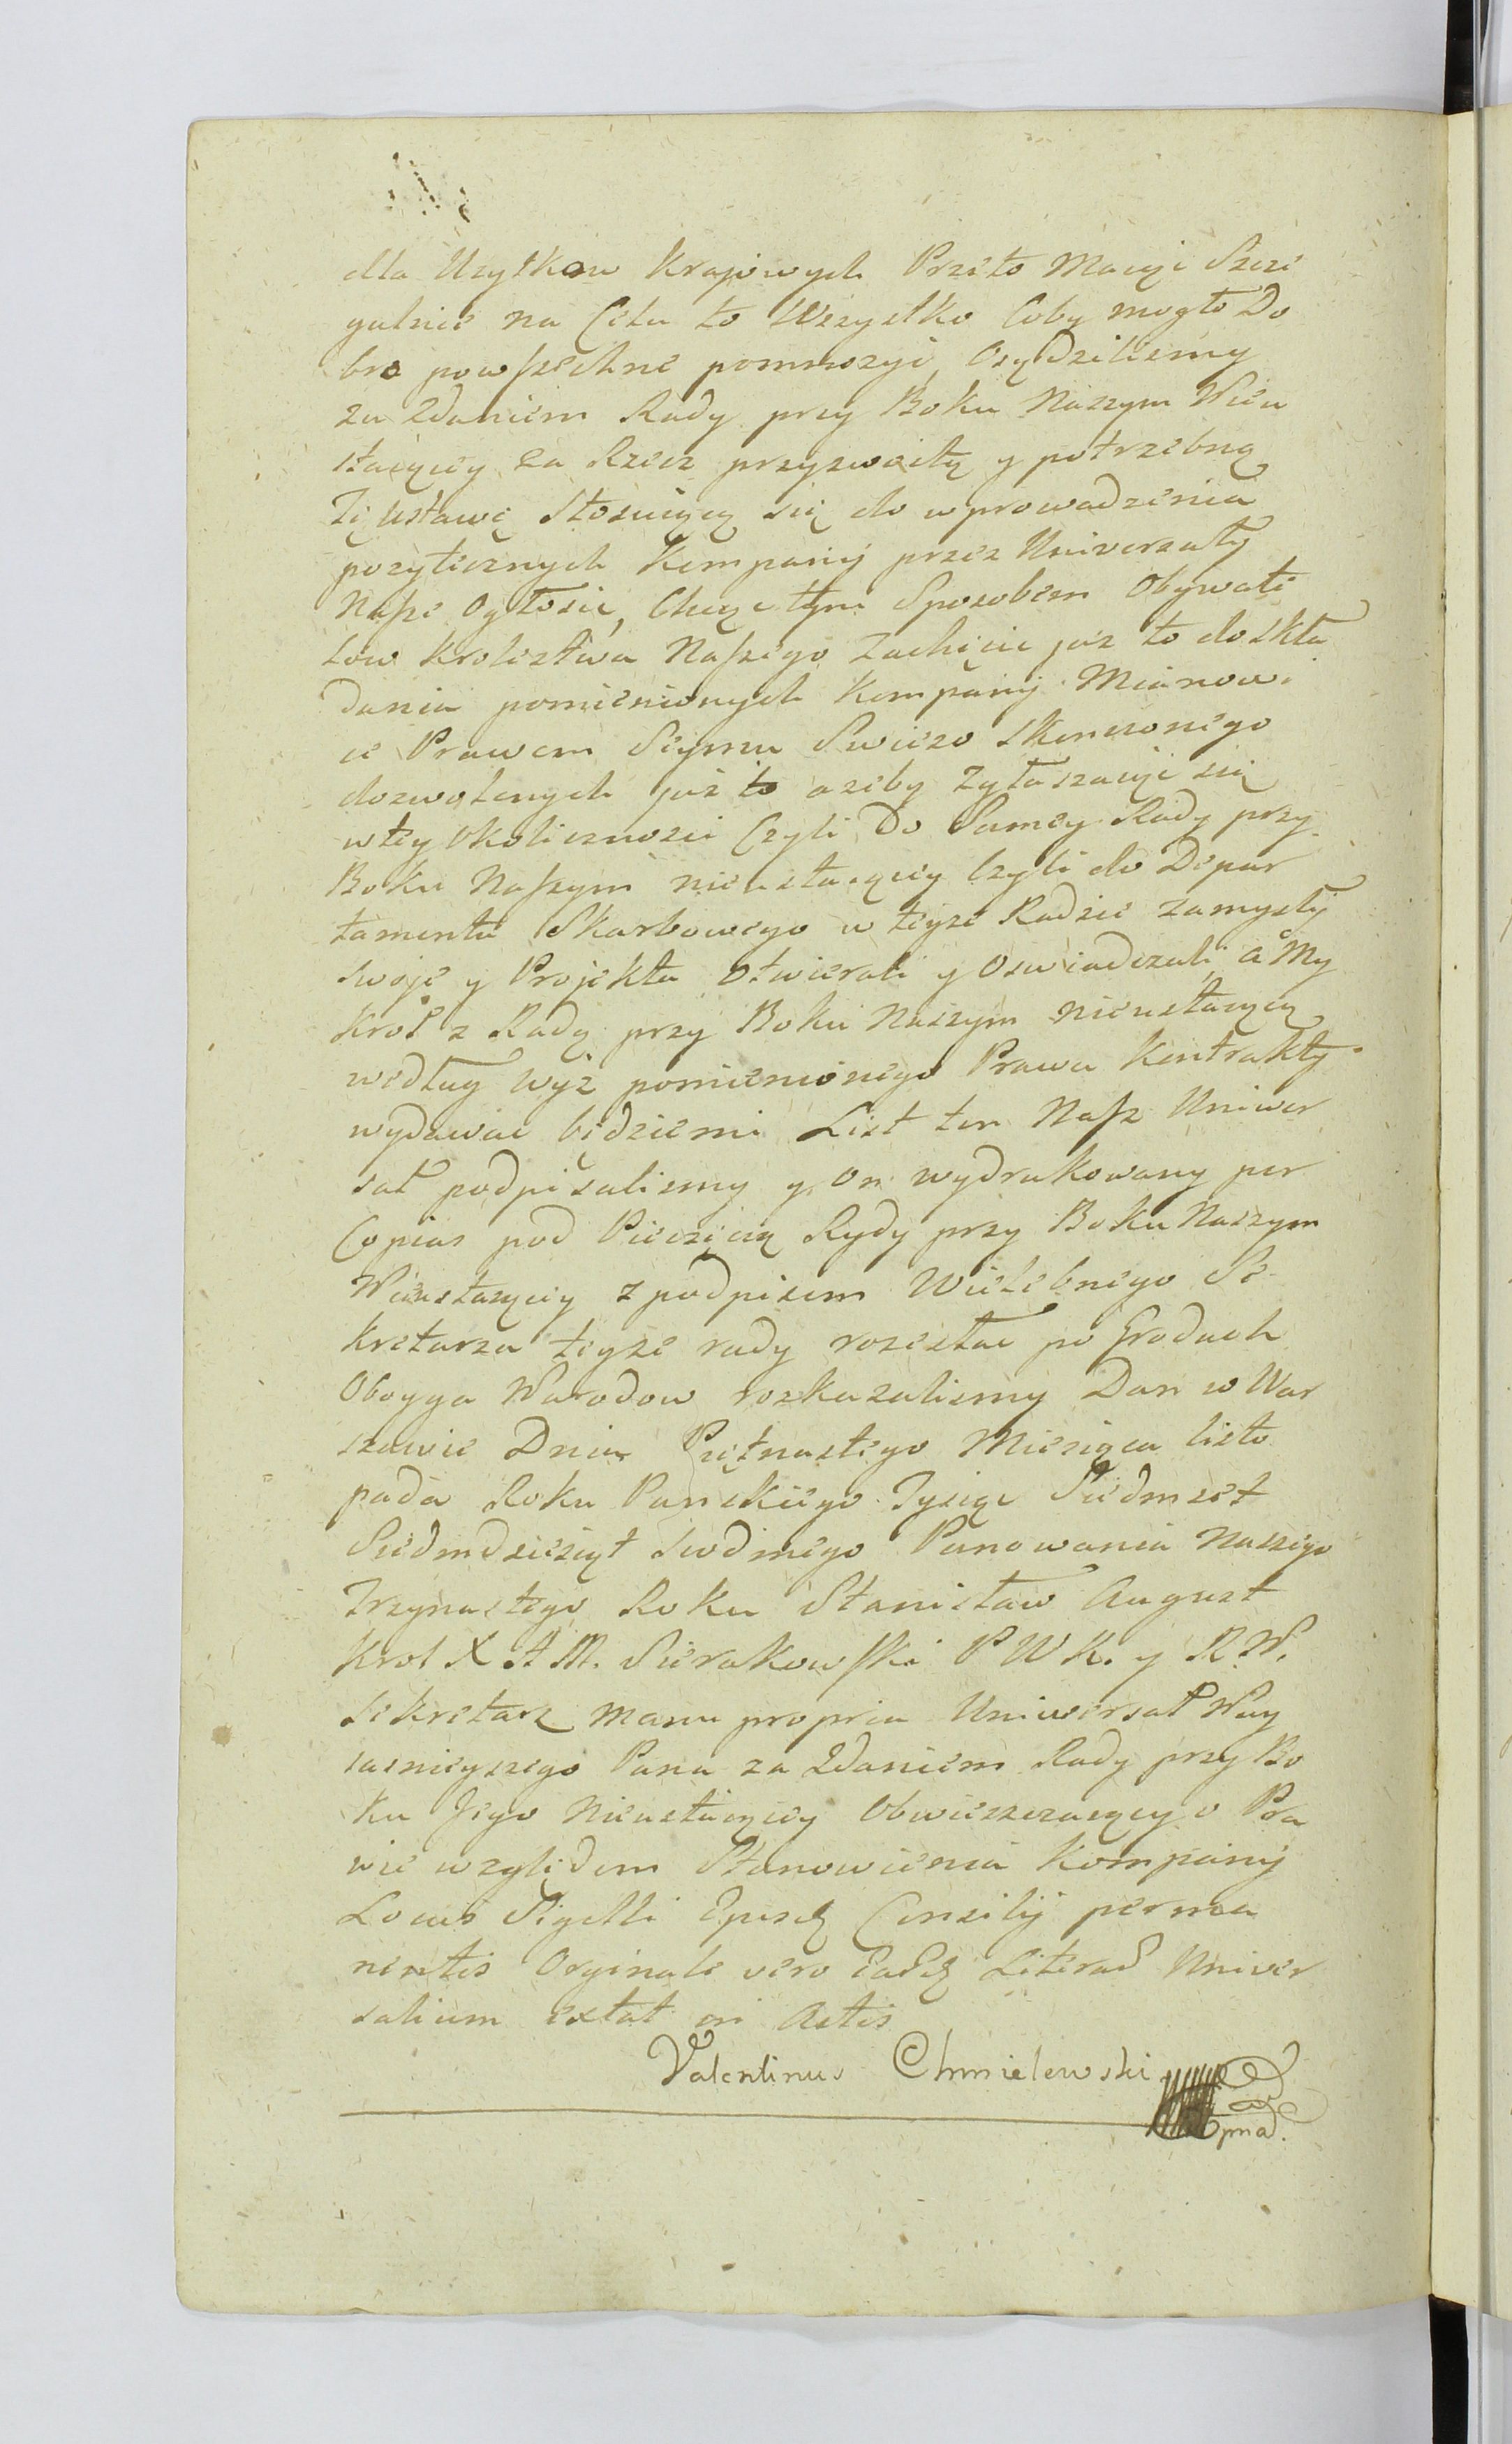 dla Uzytkow Krajowych Przeto Maiąc Szcze
gulnie na Celu to Wszystko Coby mogło Do
bro powszechne pomnozyć, Osądzilismy
za Zdaniem Rady przy Boku Naszym Nieu
staiącey za Rzecz przyzwoitą y potrzebną
Tę ustawę Stosuiącą się do wprowadzenia
pozytecznych Kompanij przez Uniwersały
Nasze Ogłosić, Chcąc tym Sposobem Obywate
low Krolestwa Naszego Zachęcic juz to do Skła
dania pomienionych Kompanij Mianowi
cie Prawem Seymu Swiezo Skonczonego
dozwolonych juz to azeby Zgłaszaiąc się
w tey Okolicznosci Czyli Do Samey Rady przy
Boku Naszym nieustaiącey Czyli do Depar
tamentu Skarbowego w teyze Radzie zamysły
swoje y Projekta otwierali y Oswiadczali a My
Krol z Radą przy Boku Naszym nieustaiącą
według wyz pomienionego Prawa Kontrakty
wydawac będziemi List ten Nasz Uniwer
sał podpisalismy y on wydrukowany per
Copias pod Pieczęcią Rydy przy Boku Naszym
Nieustaiącey z podpisem Wielebnego Se-
kretarza teyze rady rozesłac po Grodach
Oboyga Narodow rozkazalismy Dan w War
szawie Dnia Piętnastego Miesiąca listo
pada Roku Panskiego Tysiąc Siedmset
Siedmdziesiąt Siodmego Panowania Naszego
Trzynastego Roku Stanisław August
Krol X A M. Sierakowski P W K. y R. N.
Sekretarz manu propria Uniwersał Nay
iasnieyszego Pana za Zdaniem Rady przy Bo
ku Jego Nieustaiącey Obwieszczaiący o Pra
wie względem Stanowienia Kompanij
Locus Sigilli Ejusd Consilij perma
nentis Orginale vero Eard Literad Univer
salium extat in Actis
Valentinus Chmielewski